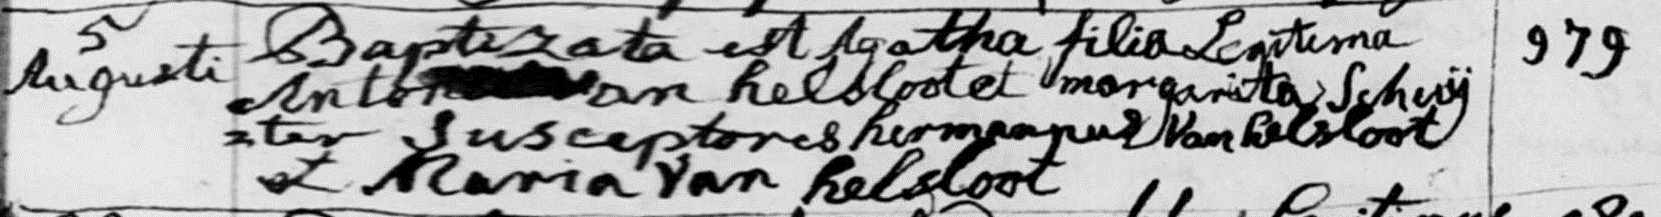 5
Augusti
Baptizata est Agatha filia Legitima
979
Anton van helsloot et margarita Schuij
=ter Susceptores hermannus Van helsloot
et Maria Van helsloot